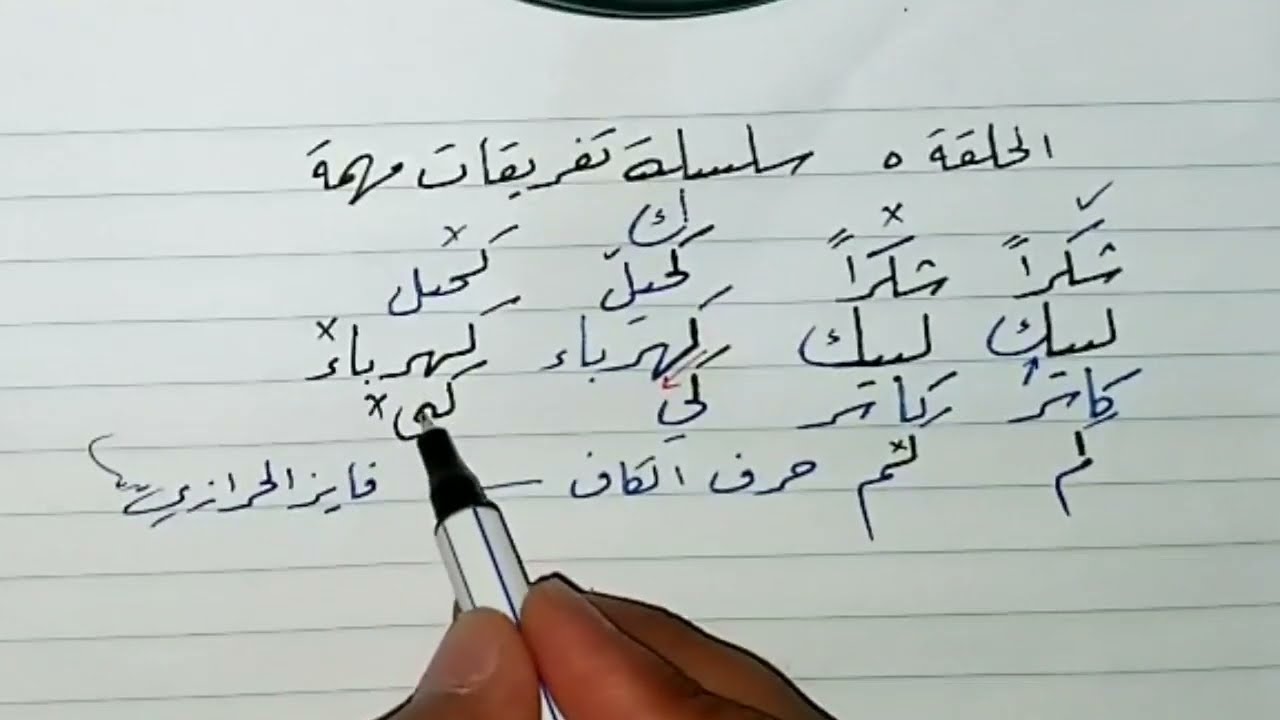 الحلقة ٥ سلسلة تفريقات مهمة
ك
شكراً شكراً كحيل كحيل
لبيك لبيك كهرباء كهرباء
كاتر كاتر كي كى
لم حرف الكاف — فايز الحرازي